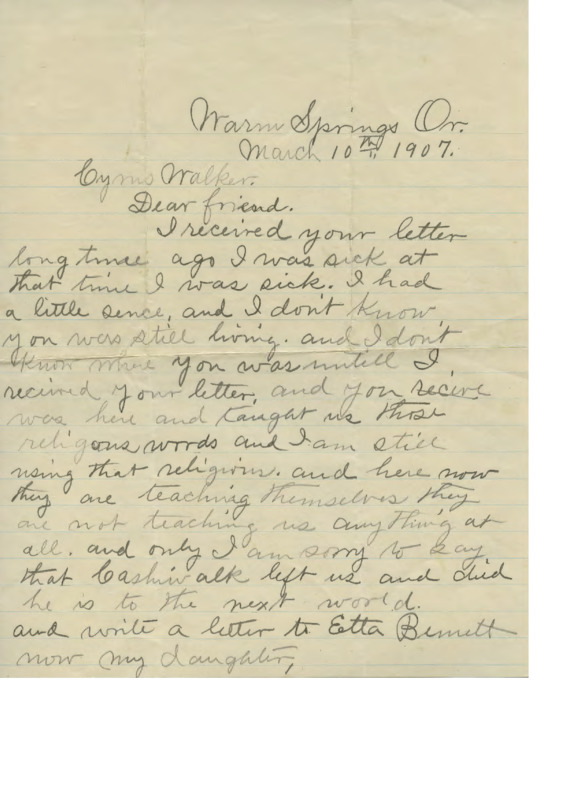 Warm Springs Or.
March 10th, 1907.
Cyrus Walker.
Dear friend.
I received your letter
long time ago I was sick at
that time I was sick. I had
a little sence, and I don't know
you wers still living. and I don't
know where you was untill I
recived your letter, and you
was here and taught us those
religous words and I am still
using that religion. and here now
they are teaching themselves they
are not teaching us anything at
all. and only I am sorry to say
that Cashiwalk left us and died
he is to the next world.
and write a letter to Etta Bennett
now my daughter,